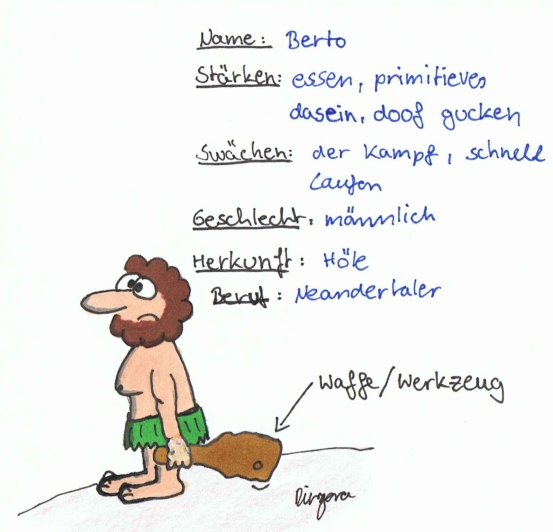 Name: Berto
Stärken: essen, primitieves
dasein, doof gucken
Swächen: der Kampf, schnell
laufen
Geschlecht: männlich
Herkunft: Höle
Beruf: Neandertaler
Waffe/Werkzeug